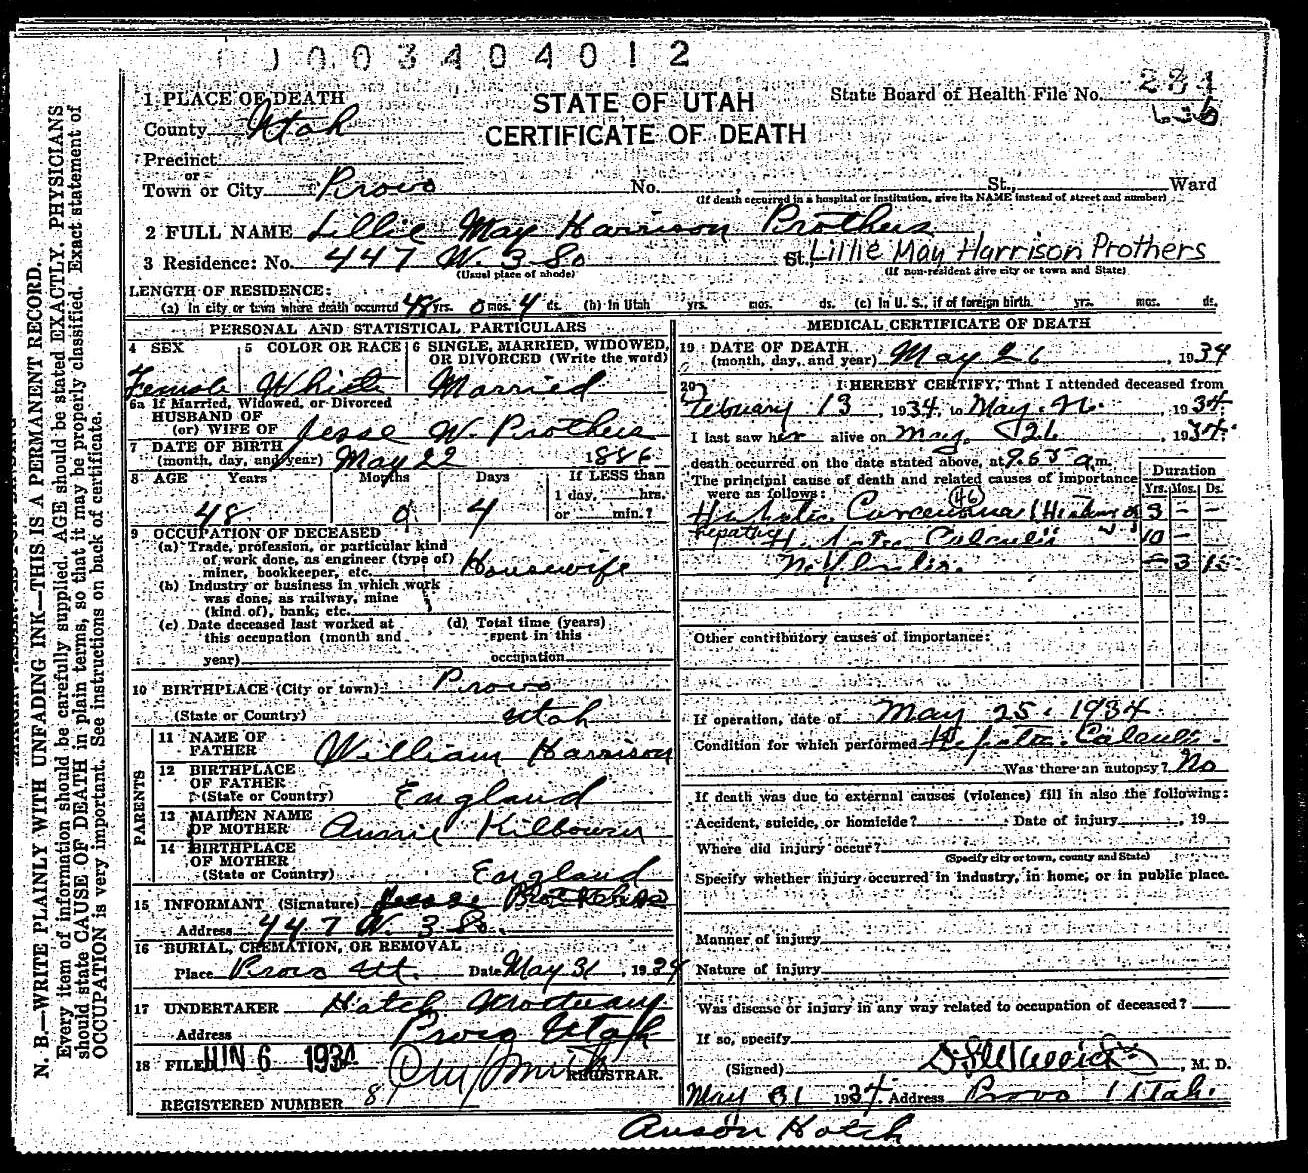 0 0 3 4 0 4 0 1 2
STATE OF UTAH
CERTIFICATE OF DEATH
State Board of Health File No. 281
636
1 PLACE OF DEATH
County Utah
Precinct
or
Town or City Provo No. St., Ward
(If death occurred in a hospital or institution, give its NAME instead of street and number)
2 FULL NAME Lillie May Harrison Prothers
3 Residence: No. 447 W. 3 So St. Lillie May Harrison Prothers
(Usual place of abode) (If non-resident give city or town and State)
LENGTH OF RESIDENCE:
(a) In city or town where death occurred 48 yrs. 0 mos. 4 ds. (b) In Utah yrs. mos. ds. (c) In U. S., if of foreign birth. yrs. mos. ds.
PERSONAL AND STATISTICAL PARTICULARS
4 SEX 5 COLOR OR RACE 6 SINGLE, MARRIED, WIDOWED, OR DIVORCED (Write the word)
Female White Married
6a If Married, Widowed, or Divorced
HUSBAND OF
(or) WIFE OF Jesse W. Prothers
7 DATE OF BIRTH
(month, day, and year) May 22 1886
8 AGE Years Months Days If LESS than
1 day, hrs.
48 0 4 or min.?
9 OCCUPATION OF DECEASED
(a) Trade, profession, or particular kind
of work done, as engineer (type of)
miner, bookkeeper, etc. Housewife
(b) Industry or business in which work
was done, as railway, mine
(kind of), bank, etc.
(c) Date deceased last worked at
this occupation (month and
year)
(d) Total time (years)
spent in this
occupation
10 BIRTHPLACE (City or town) Provo
(State or Country) Utah
PARENTS
11 NAME OF
FATHER William Harrison
12 BIRTHPLACE
OF FATHER
(State or Country) England
13 MAIDEN NAME
OF MOTHER Annie Kilbourn
14 BIRTHPLACE
OF MOTHER
(State or Country) England
15 INFORMANT (Signature) Jesse Prothers
Address 447 W. 3 So.
16 BURIAL, CREMATION, OR REMOVAL
Place Provo Ut. Date May 31, 1934
17 UNDERTAKER Hatch Mortuary
Address Provo Utah
18 FILED JUN 6 1934
REGISTRAR.
REGISTERED NUMBER 81
MEDICAL CERTIFICATE OF DEATH
19 DATE OF DEATH
(month, day, and year) May 26, 1934
20 I HEREBY CERTIFY, That I attended deceased from
February 13, 1934, to May. 26., 1934.
I last saw her alive on May. 26, 1934.
death occurred on the date stated above, at a.m.
The principal cause of death and related causes of importance
were as follows: Duration
Yrs. Mos. Ds.
46
Carcinoma 3 - -
Calculi 10 -
- 3 15
Other contributory causes of importance:
If operation, date of May 25. 1934
Condition for which performed Hepatic Calculi
Was there an autopsy? No
If death was due to external causes (violence) fill in also the following:
Accident, suicide, or homicide? Date of injury, 19
Where did injury occur?
(Specify city or town, county and State)
Specify whether injury occurred in industry, in home, or in public place.
Manner of injury
Nature of injury
Was disease or injury in any way related to occupation of deceased?
If so, specify
(Signed), M. D.
May 31 1934 Address Provo Utah.
Anson Hatch
N. B.—WRITE PLAINLY WITH UNFADING INK—THIS IS A PERMANENT RECORD.
Every item of information should be carefully supplied. AGE should be stated EXACTLY. PHYSICIANS
should state CAUSE OF DEATH in plain terms, so that it may be properly classified. Exact statement of
OCCUPATION is very important. See instructions on back of certificate.